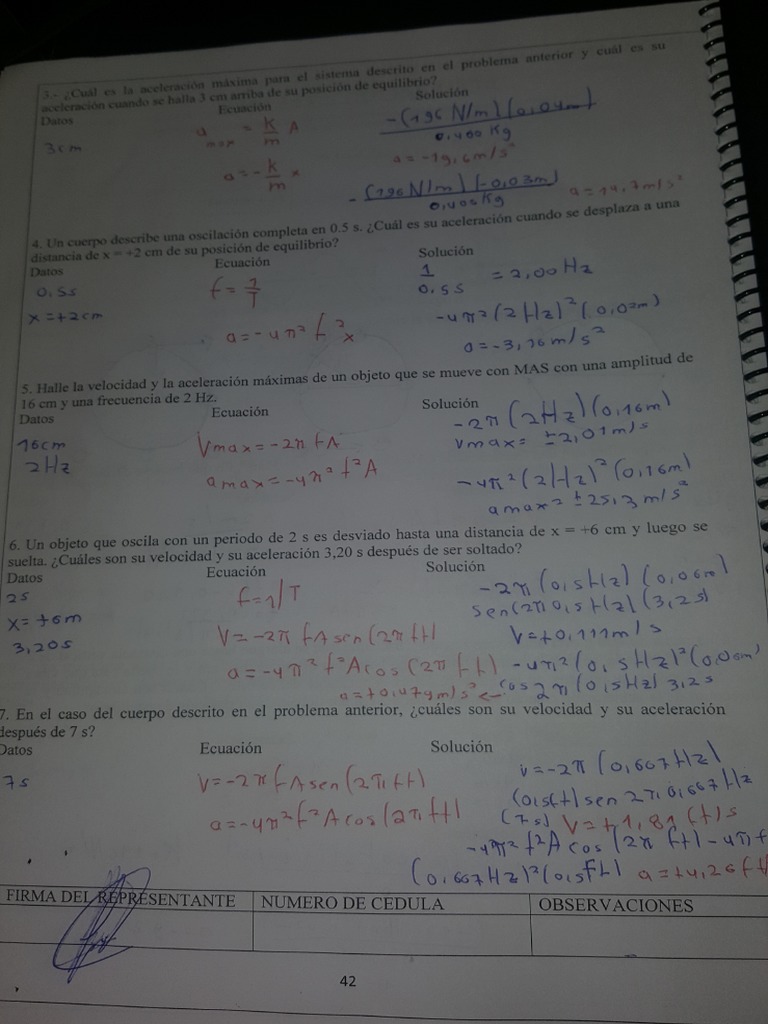 3.- ¿Cuál es la aceleración máxima para el sistema descrito en el problema anterior y cuál es su
aceleración cuando se halla 3 cm arriba de su posición de equilibrio?
Datos Ecuación Solución
3cm a max = k/m A -(196 N/m)(0,04m)
0,400 Kg
a = -19,6 m/s²
a = -k/m x -(196 N/m)(-0,03m) a = 14,7 m/s²
0,400 Kg
4. Un cuerpo describe una oscilación completa en 0.5 s. ¿Cuál es su aceleración cuando se desplaza a una
distancia de x = +2 cm de su posición de equilibrio?
Datos Ecuación Solución
0,5s f = 1/T 1/0,5s = 2,00 Hz
x = +2cm a = -4π² f² x -4π²(2Hz)²(0,02m)
a = -3,16 m/s²
5. Halle la velocidad y la aceleración máximas de un objeto que se mueve con MAS con una amplitud de
16 cm y una frecuencia de 2 Hz.
Datos Ecuación Solución
16cm Vmax = -2π fA -2π(2Hz)(0,16m)
2Hz vmax = ±2,01m/s
amax = -4π² f² A -4π²(2Hz)²(0,16m)
amax = ±25,3 m/s²
6. Un objeto que oscila con un periodo de 2 s es desviado hasta una distancia de x = +6 cm y luego se
suelta. ¿Cuáles son su velocidad y su aceleración 3,20 s después de ser soltado?
Datos Ecuación Solución
2s f = 1/T -2π(0,5Hz)(0,06m)
x = +6m sen(2π 0,5Hz)(3,2s)
3,20s V = -2π fA sen(2π ft) V = +0,111m/s
a = -4π² f² A cos(2π ft) -4π²(0,5Hz)²(0,06m)
a = +0,479m/s² ← cos 2π(0,5Hz) 3,2s
7. En el caso del cuerpo descrito en el problema anterior, ¿cuáles son su velocidad y su aceleración
después de 7 s?
Datos Ecuación Solución
7s V = -2π fA sen(2π ft) v = -2π(0,667Hz)
(0,5ft) sen 2π 0,667Hz
a = -4π² f² A cos(2π ft) (7s) V = +1,81 ft/s
-4π² f² A cos(2π ft) -4π f
(0,667Hz)²(0,5ft) a = +4,26 ft
FIRMA DEL REPRESENTANTE NUMERO DE CEDULA OBSERVACIONES
42